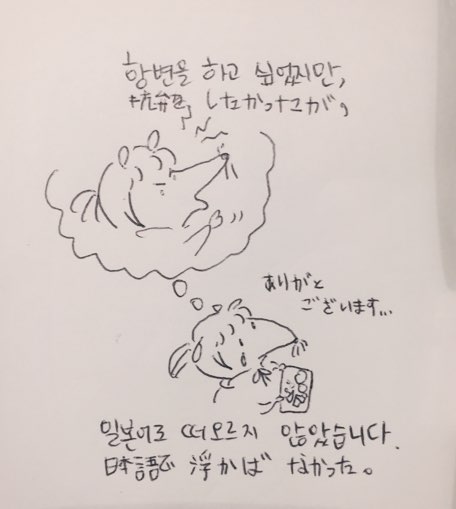 항변을 하고 싶었지만,
抗弁を したかったが,
ありがと
ございます...
일본어로 떠오르지 않았습니다.
日本語で 浮かばなかった。